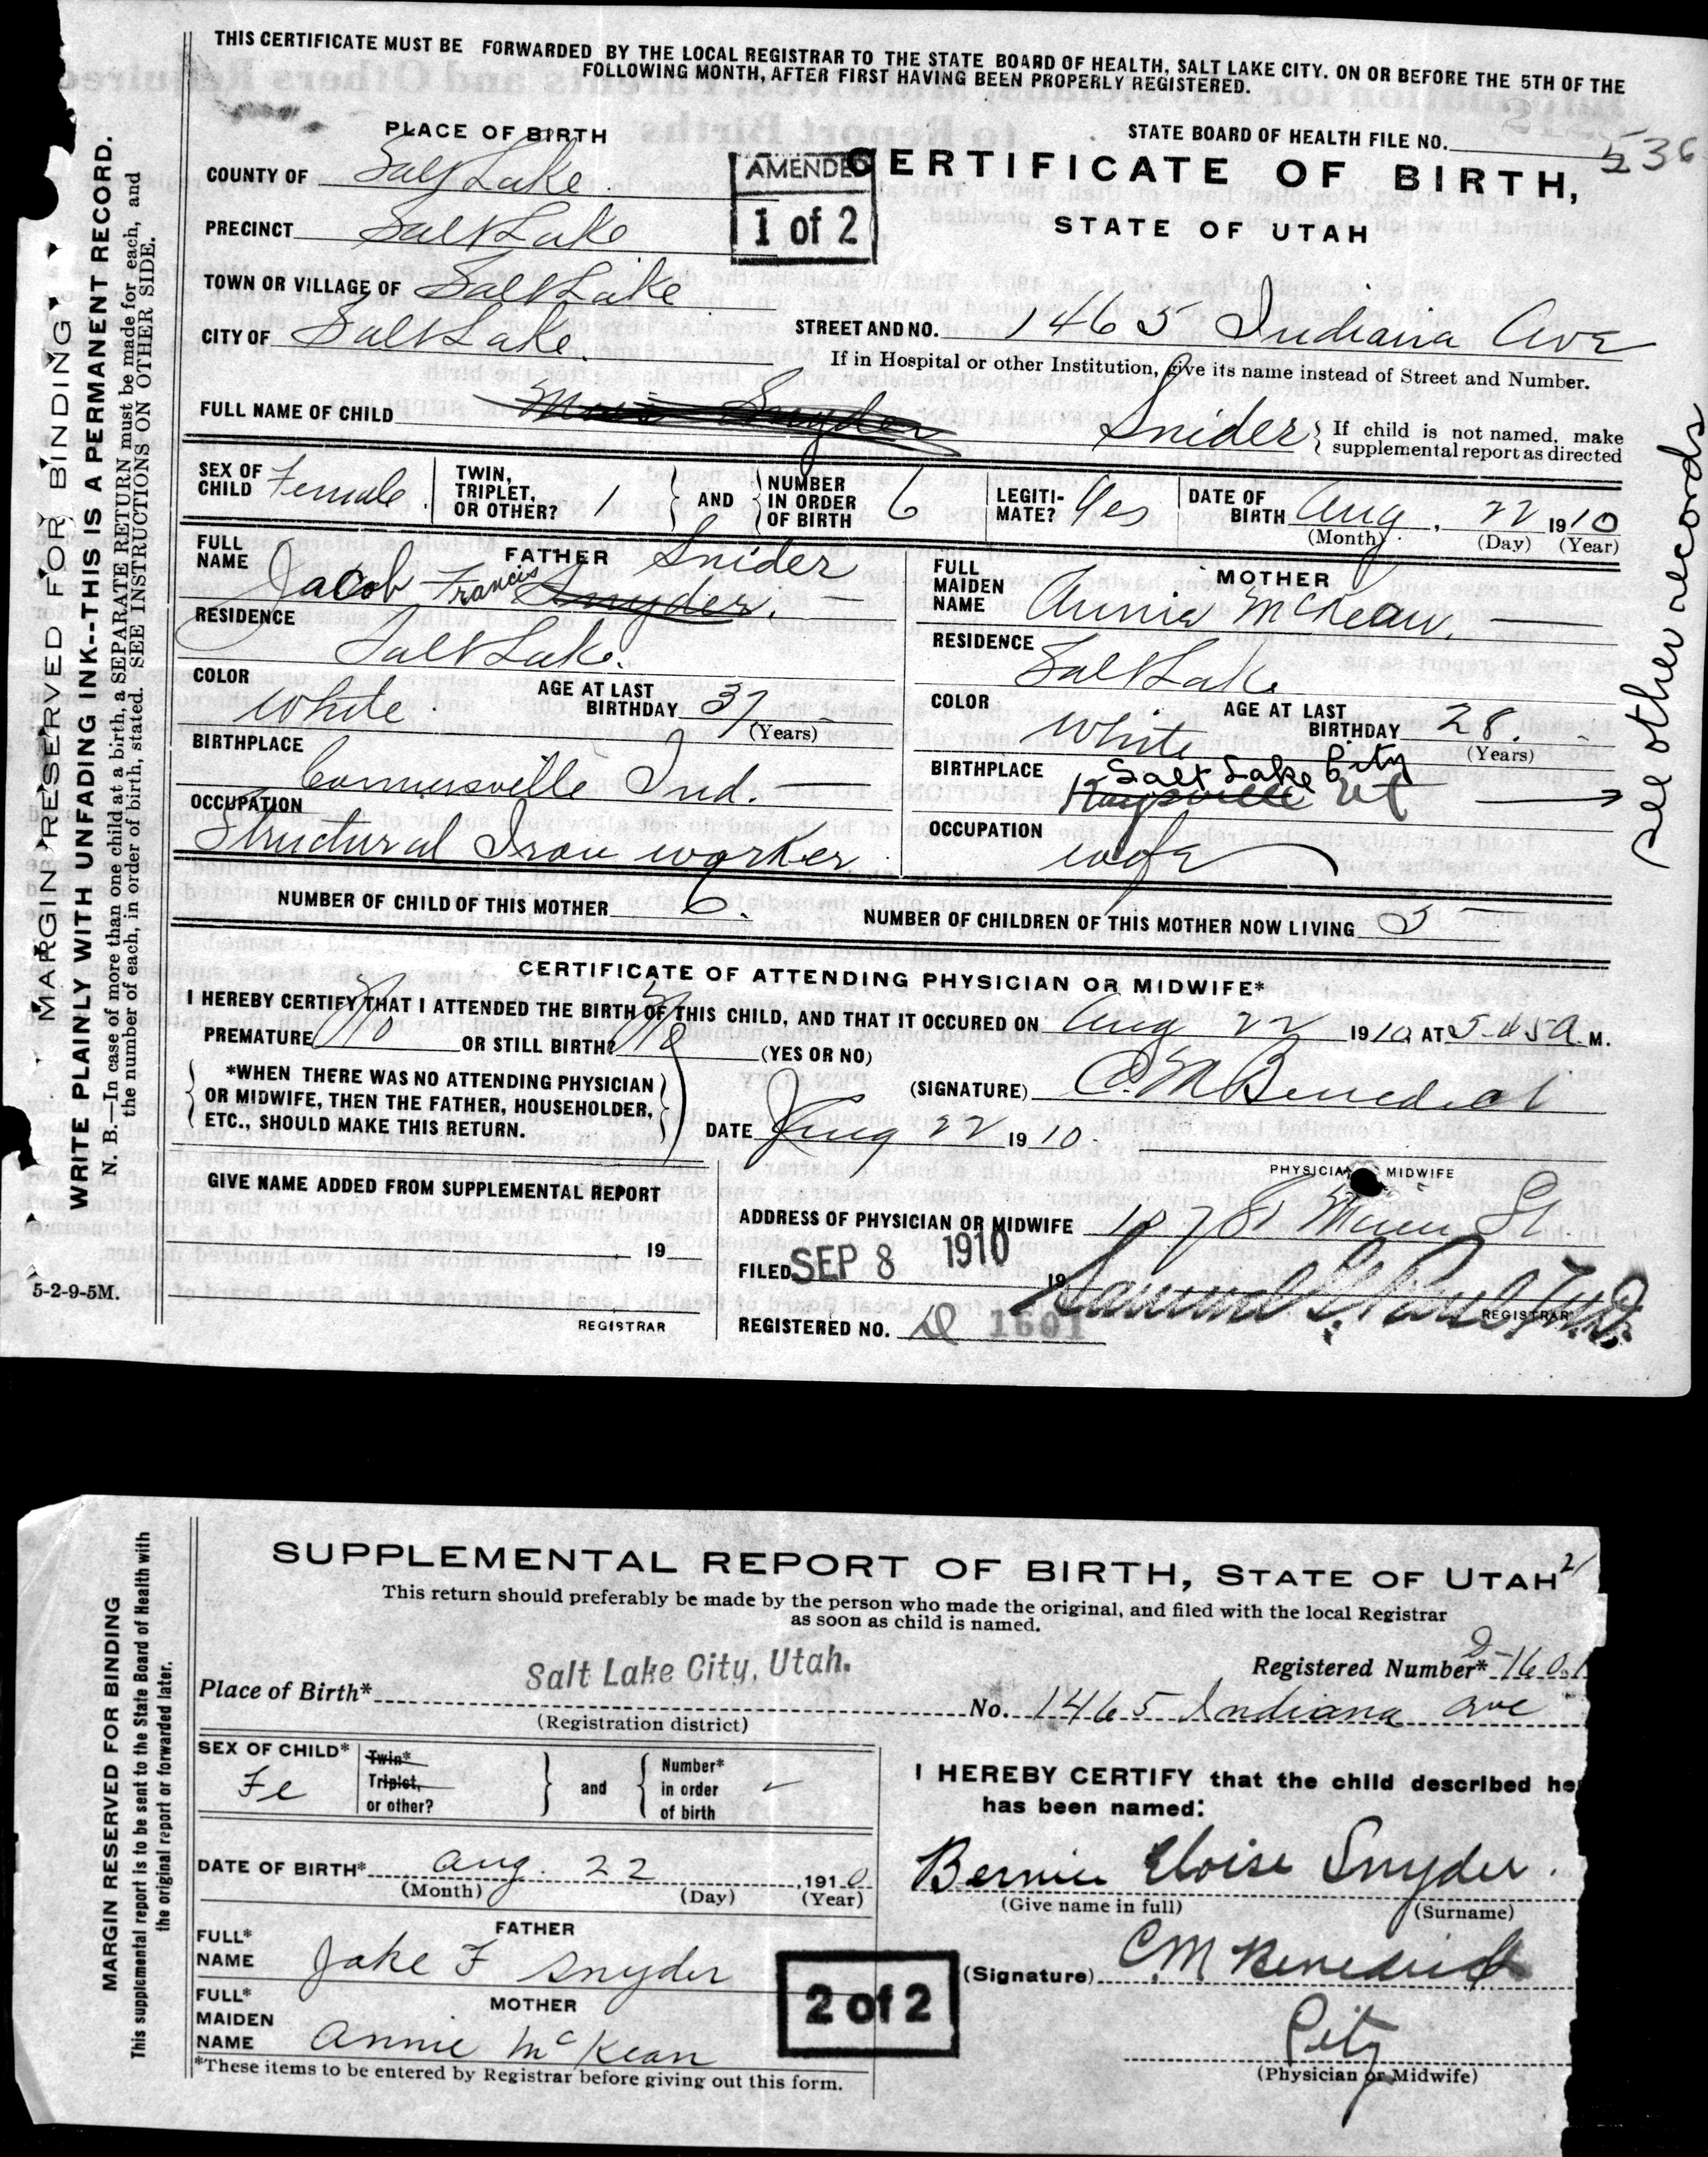 THIS CERTIFICATE MUST BE FORWARDED BY THE LOCAL REGISTRAR TO THE STATE BOARD OF HEALTH, SALT LAKE CITY. ON OR BEFORE THE 5TH OF THE
FOLLOWING MONTH, AFTER FIRST HAVING BEEN PROPERLY REGISTERED.
PLACE OF BIRTH
STATE BOARD OF HEALTH FILE NO. 536
COUNTY OF Salt Lake
AMENDED
1 of 2
CERTIFICATE OF BIRTH,
STATE OF UTAH
PRECINCT Salt Lake
TOWN OR VILLAGE OF Salt Lake
CITY OF Salt Lake.
STREET AND NO. 1465 Indiana Ave
If in Hospital or other Institution, give its name instead of Street and Number.
FULL NAME OF CHILD Snyder Snider
If child is not named, make
supplemental report as directed
SEX OF CHILD Female
TWIN, TRIPLET, OR OTHER? 1
AND
NUMBER IN ORDER OF BIRTH 6
LEGITI-MATE? Yes
DATE OF BIRTH Aug. 22 1910
(Month) (Day) (Year)
FULL NAME
FATHER Snider
Jacob Francis Snyder.
RESIDENCE
Salt Lake.
COLOR
White
AGE AT LAST BIRTHDAY 37
(Years)
BIRTHPLACE
Connersville Ind.
OCCUPATION
Structural Iron worker
FULL MAIDEN NAME
MOTHER
Annie McKean.
RESIDENCE
Salt Lake
COLOR
White
AGE AT LAST BIRTHDAY 28.
(Years)
BIRTHPLACE
Salt Lake City
Kaysville Ut
OCCUPATION
wife
See other records
NUMBER OF CHILD OF THIS MOTHER 6.
NUMBER OF CHILDREN OF THIS MOTHER NOW LIVING 5
CERTIFICATE OF ATTENDING PHYSICIAN OR MIDWIFE*
I HEREBY CERTIFY THAT I ATTENDED THE BIRTH OF THIS CHILD, AND THAT IT OCCURED ON Aug 22 1910, AT 5-45 A. M.
PREMATURE No OR STILL BIRTH? No (YES OR NO)
*WHEN THERE WAS NO ATTENDING PHYSICIAN
OR MIDWIFE, THEN THE FATHER, HOUSEHOLDER,
ETC., SHOULD MAKE THIS RETURN.
(SIGNATURE) C.M. Benedict
DATE Aug 22 1910.
PHYSICIAN MIDWIFE
GIVE NAME ADDED FROM SUPPLEMENTAL REPORT
19
REGISTRAR
ADDRESS OF PHYSICIAN OR MIDWIFE Main St.
FILED SEP 8 1910 19
REGISTRAR
REGISTERED NO. D 1601
MARGIN RESERVED FOR BINDING
WRITE PLAINLY WITH UNFADING INK--THIS IS A PERMANENT RECORD.
N. B.—In case of more than one child at a birth, a SEPARATE RETURN must be made for each, and
the number of each, in order of birth, stated. SEE INSTRUCTIONS ON OTHER SIDE.
5-2-9-5M.
SUPPLEMENTAL REPORT OF BIRTH, STATE OF UTAH
This return should preferably be made by the person who made the original, and filed with the local Registrar
as soon as child is named.
Registered Number* D-1601
Place of Birth* Salt Lake City, Utah.
(Registration district)
No. 1465 Indiana ave
SEX OF CHILD*
Fe
Twin*
Triplet,
or other?
and
Number*
in order
of birth
DATE OF BIRTH* Aug. 22, 1910
(Month) (Day) (Year)
FULL* NAME
FATHER
Jake F Snyder
FULL* MAIDEN NAME
MOTHER
Annie McKean
*These items to be entered by Registrar before giving out this form.
2 of 2
I HEREBY CERTIFY that the child described he
has been named:
Bernice Eloise Snyder.
(Give name in full) (Surname)
(Signature) C.M Benedict
City
(Physician or Midwife)
MARGIN RESERVED FOR BINDING
This supplemental report is to be sent to the State Board of Health with
the original report or forwarded later.